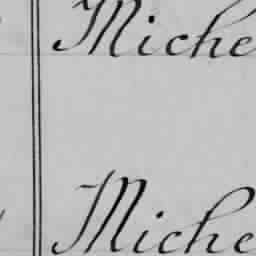 Miche
Miche